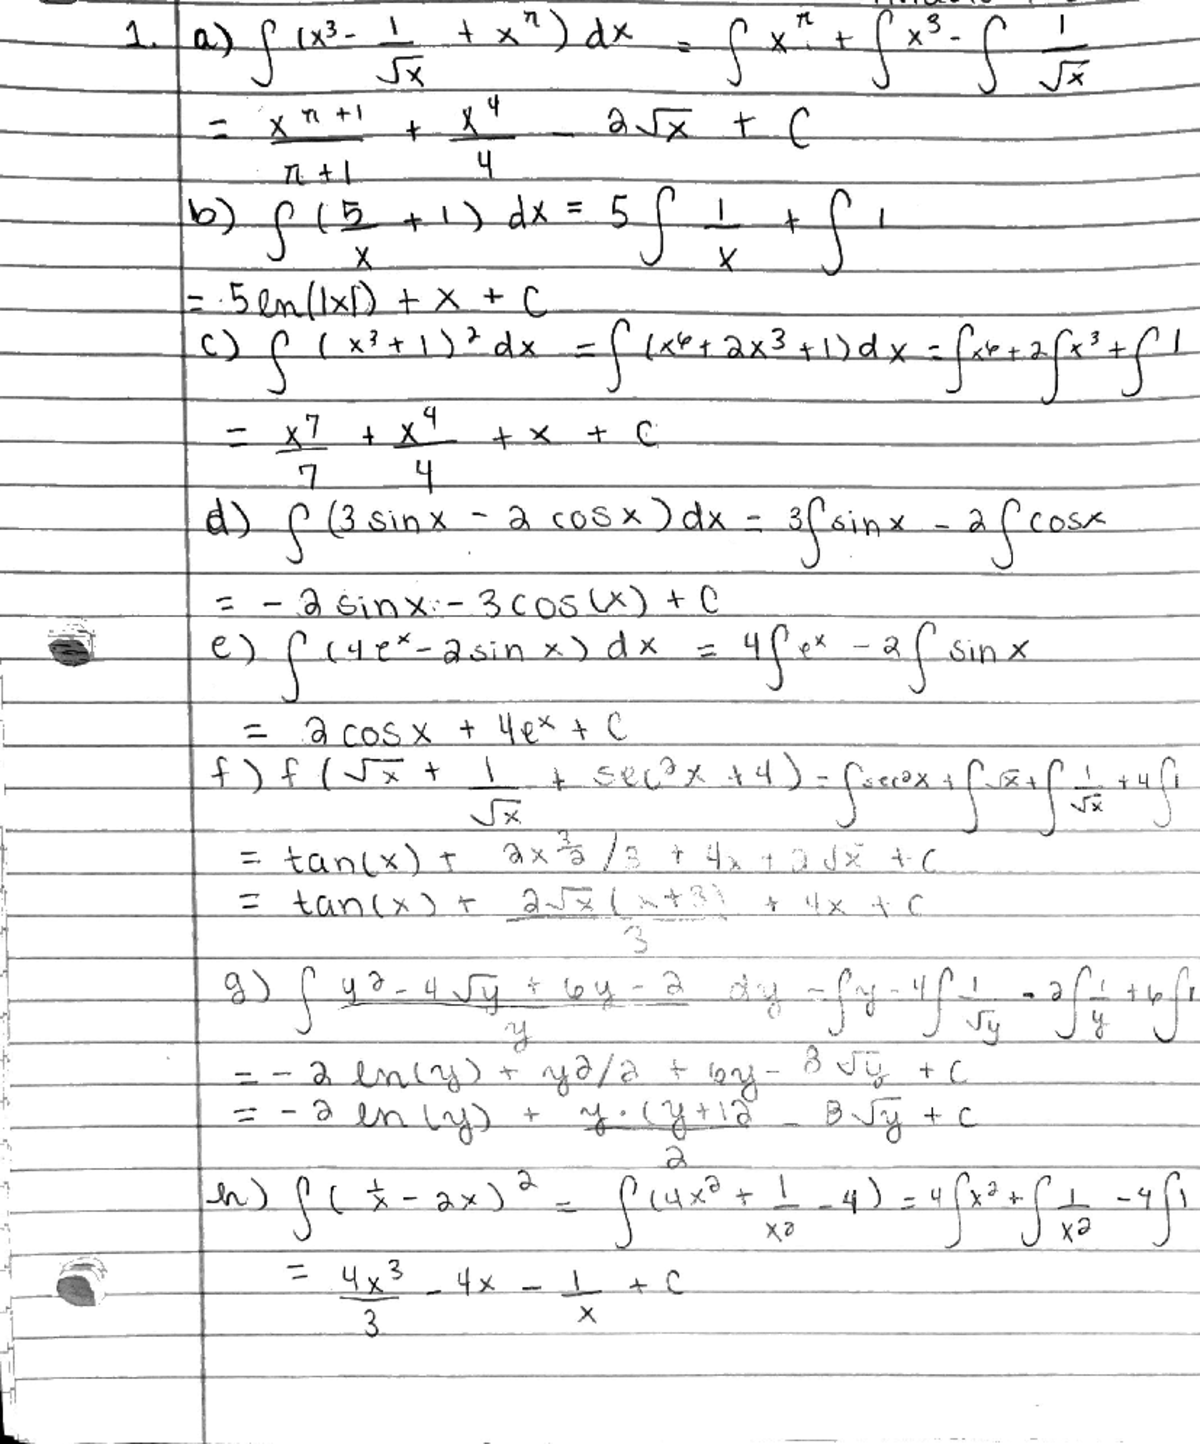 1. a) ∫ (x³ - 1/√x + xⁿ) dx = ∫ xⁿ + ∫ x³ - ∫ 1/√x
= xⁿ⁺¹/(n+1) + x⁴/4 - 2√x + C
b) ∫ (5/x + 1) dx = 5 ∫ 1/x + ∫ 1
= 5 ln(|x|) + x + C
c) ∫ (x³ + 1)² dx = ∫ (x⁶ + 2x³ + 1) dx = ∫ x⁶ + 2∫ x³ + ∫ 1
= x⁷/7 + x⁴/4 + x + C
d) ∫ (3 sin x - 2 cos x) dx = 3∫ sin x - 2 ∫ cos x
= - 2 sin x - 3 cos (x) + C
e) ∫ (4eˣ - 2 sin x) dx = 4∫ eˣ - 2∫ sin x
= 2 cos x + 4eˣ + C
f) f (√x + 1/√x + sec²x + 4) = ∫ sec²x + ∫ √x + ∫ 1/√x + 4∫ 1
= tan(x) + 2x^(3/2)/3 + 4x + 2√x + C
= tan(x) + 2√x(x+3)/3 + 4x + C
g) ∫ (y² - 4√y + 6y - 2)/y dy = ∫ y - 4∫ 1/√y - 2∫ 1/y + 6∫ 1
= - 2 ln(y) + y²/2 + 6y - 8√y + C
= - 2 ln(y) + y·(y+12/2 - 8√y + C
h) ∫ (1/x - 2x)² = ∫ (4x² + 1/x² - 4) = 4∫ x² + ∫ 1/x² - 4∫ 1
= 4x³/3 - 4x - 1/x + C